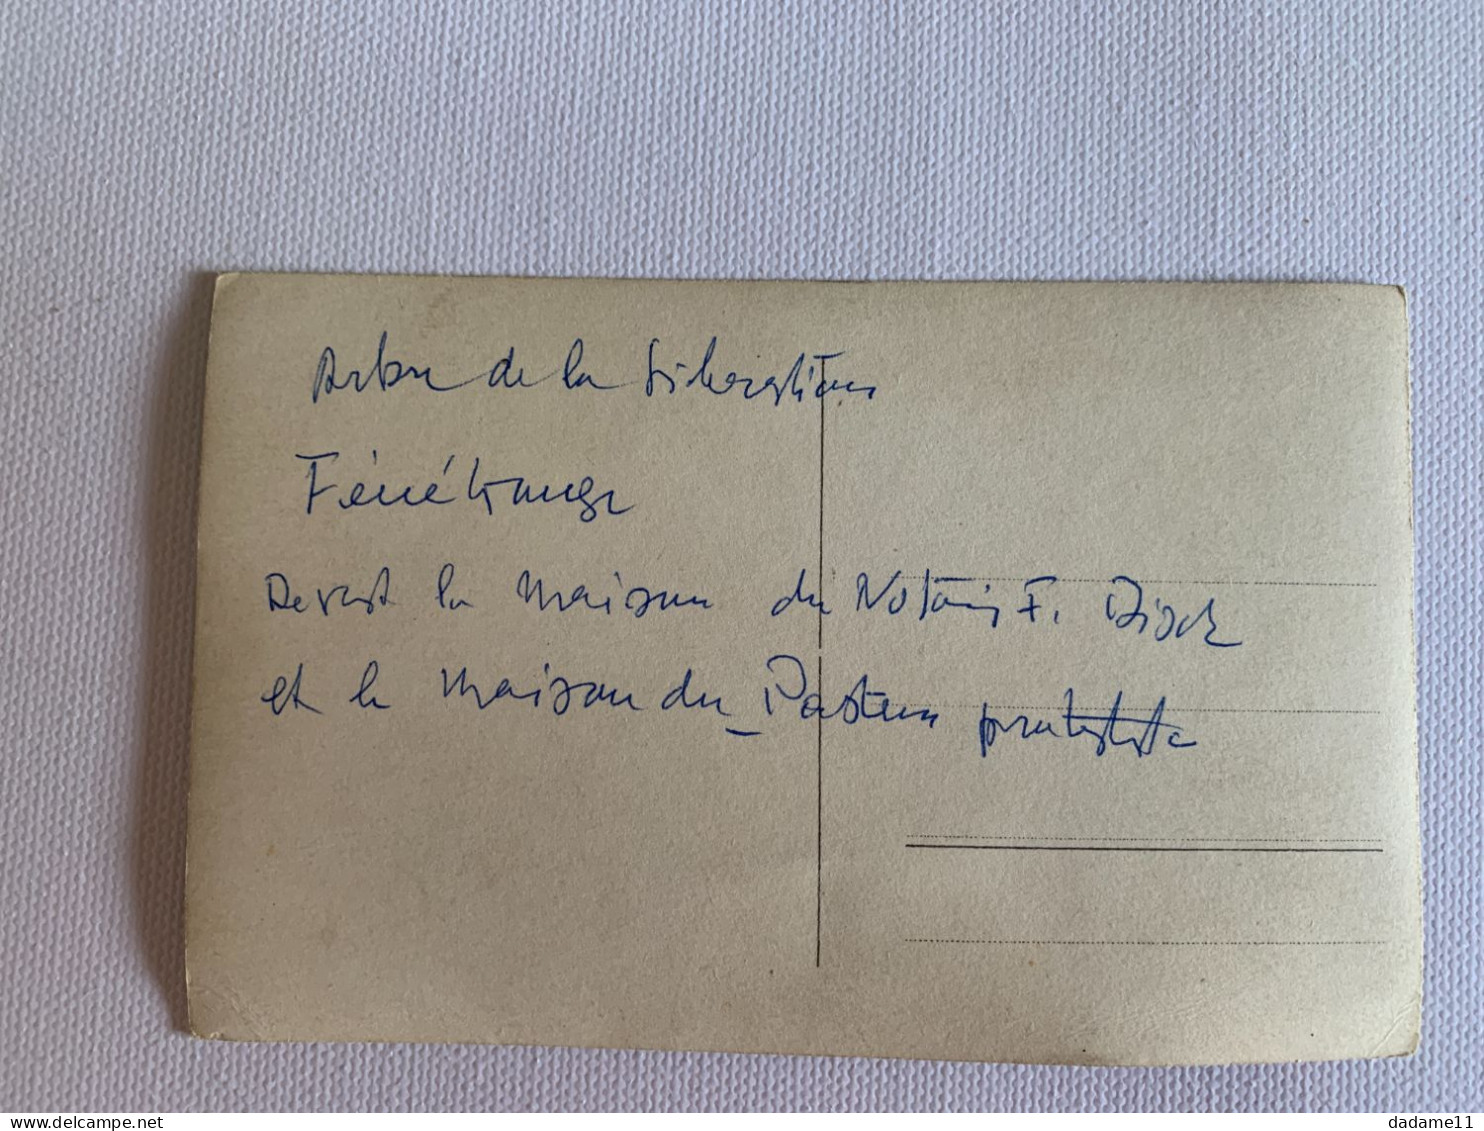 Arbre de la Libération
Fénétrange
Devant la maison du Notaire F.
et la maison du Pasteur protestant
delcampe.net
dadame11